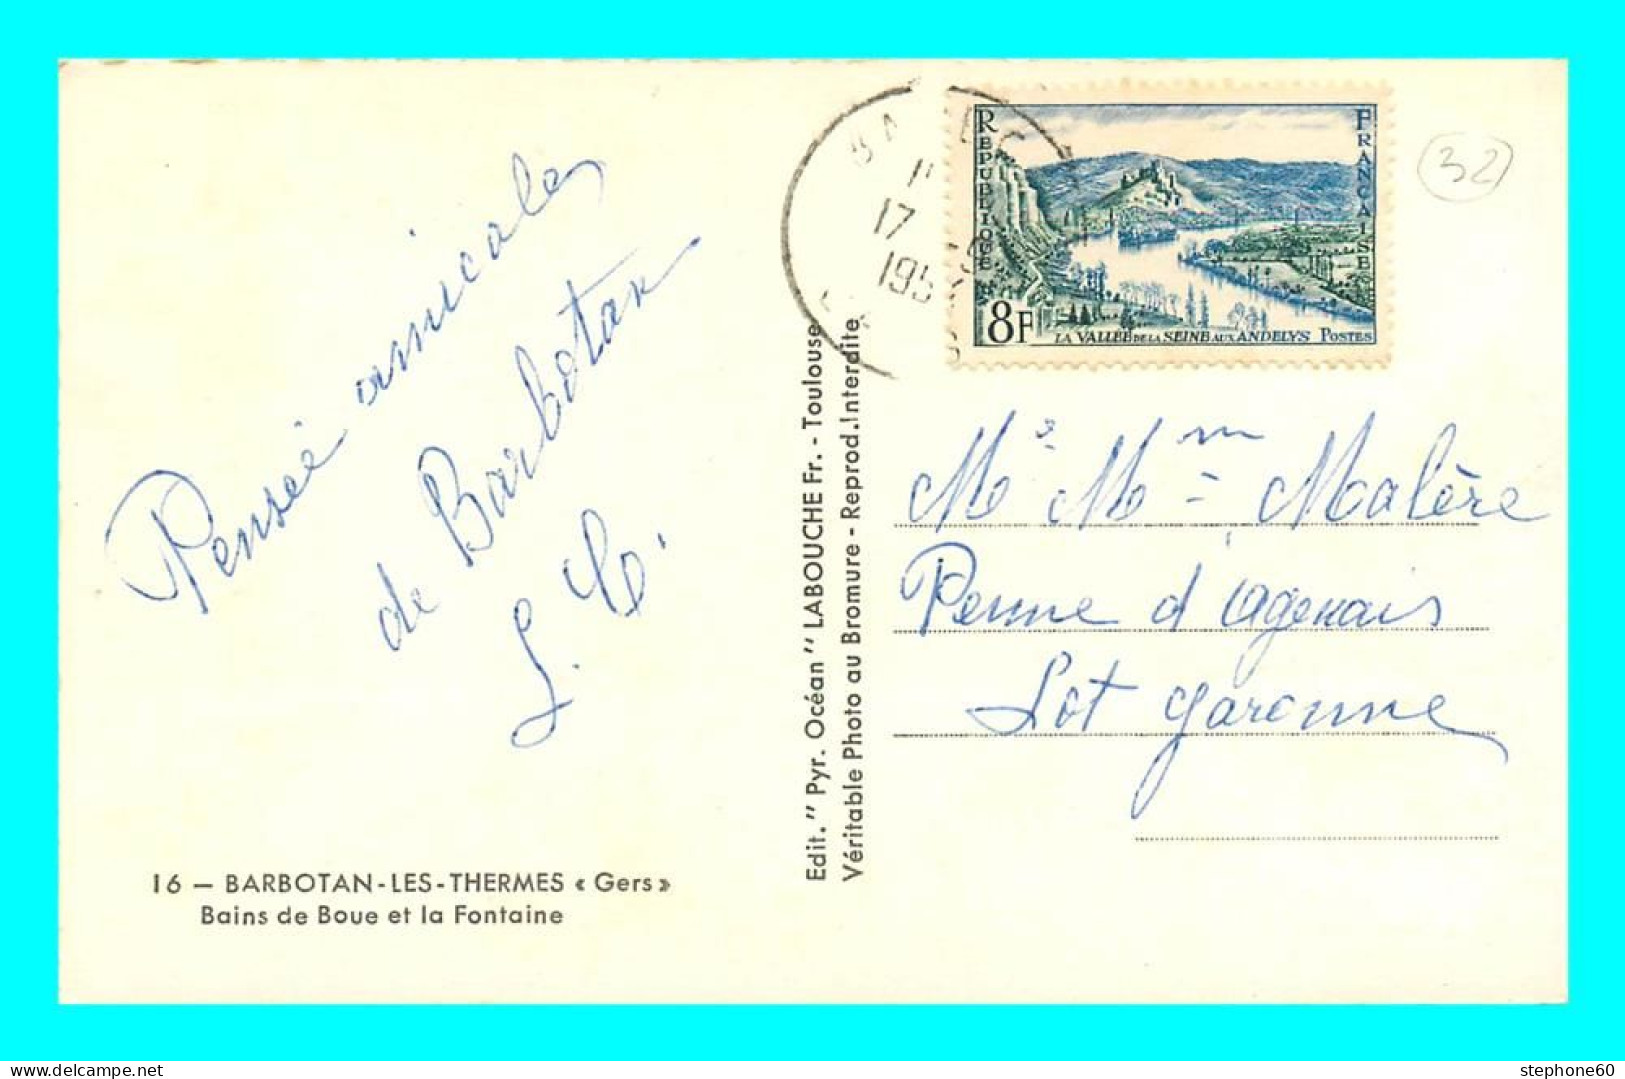 Pensée amicales
de Barbotan
L. C.
16 — BARBOTAN-LES-THERMES « Gers »
Bains de Boue et la Fontaine
Edit. " Pyr. Océan " LABOUCHE Fr. - Toulouse
Véritable Photo au Bromure - Reprod. Interdite
17
REPUBLIQUE
FRANÇAISE
8F
LA VALLÉE DE LA SEINE AUX ANDELYS POSTES
32
Mr Mme Malère
Penne d'Agenais
Lot Garonne
stephone60